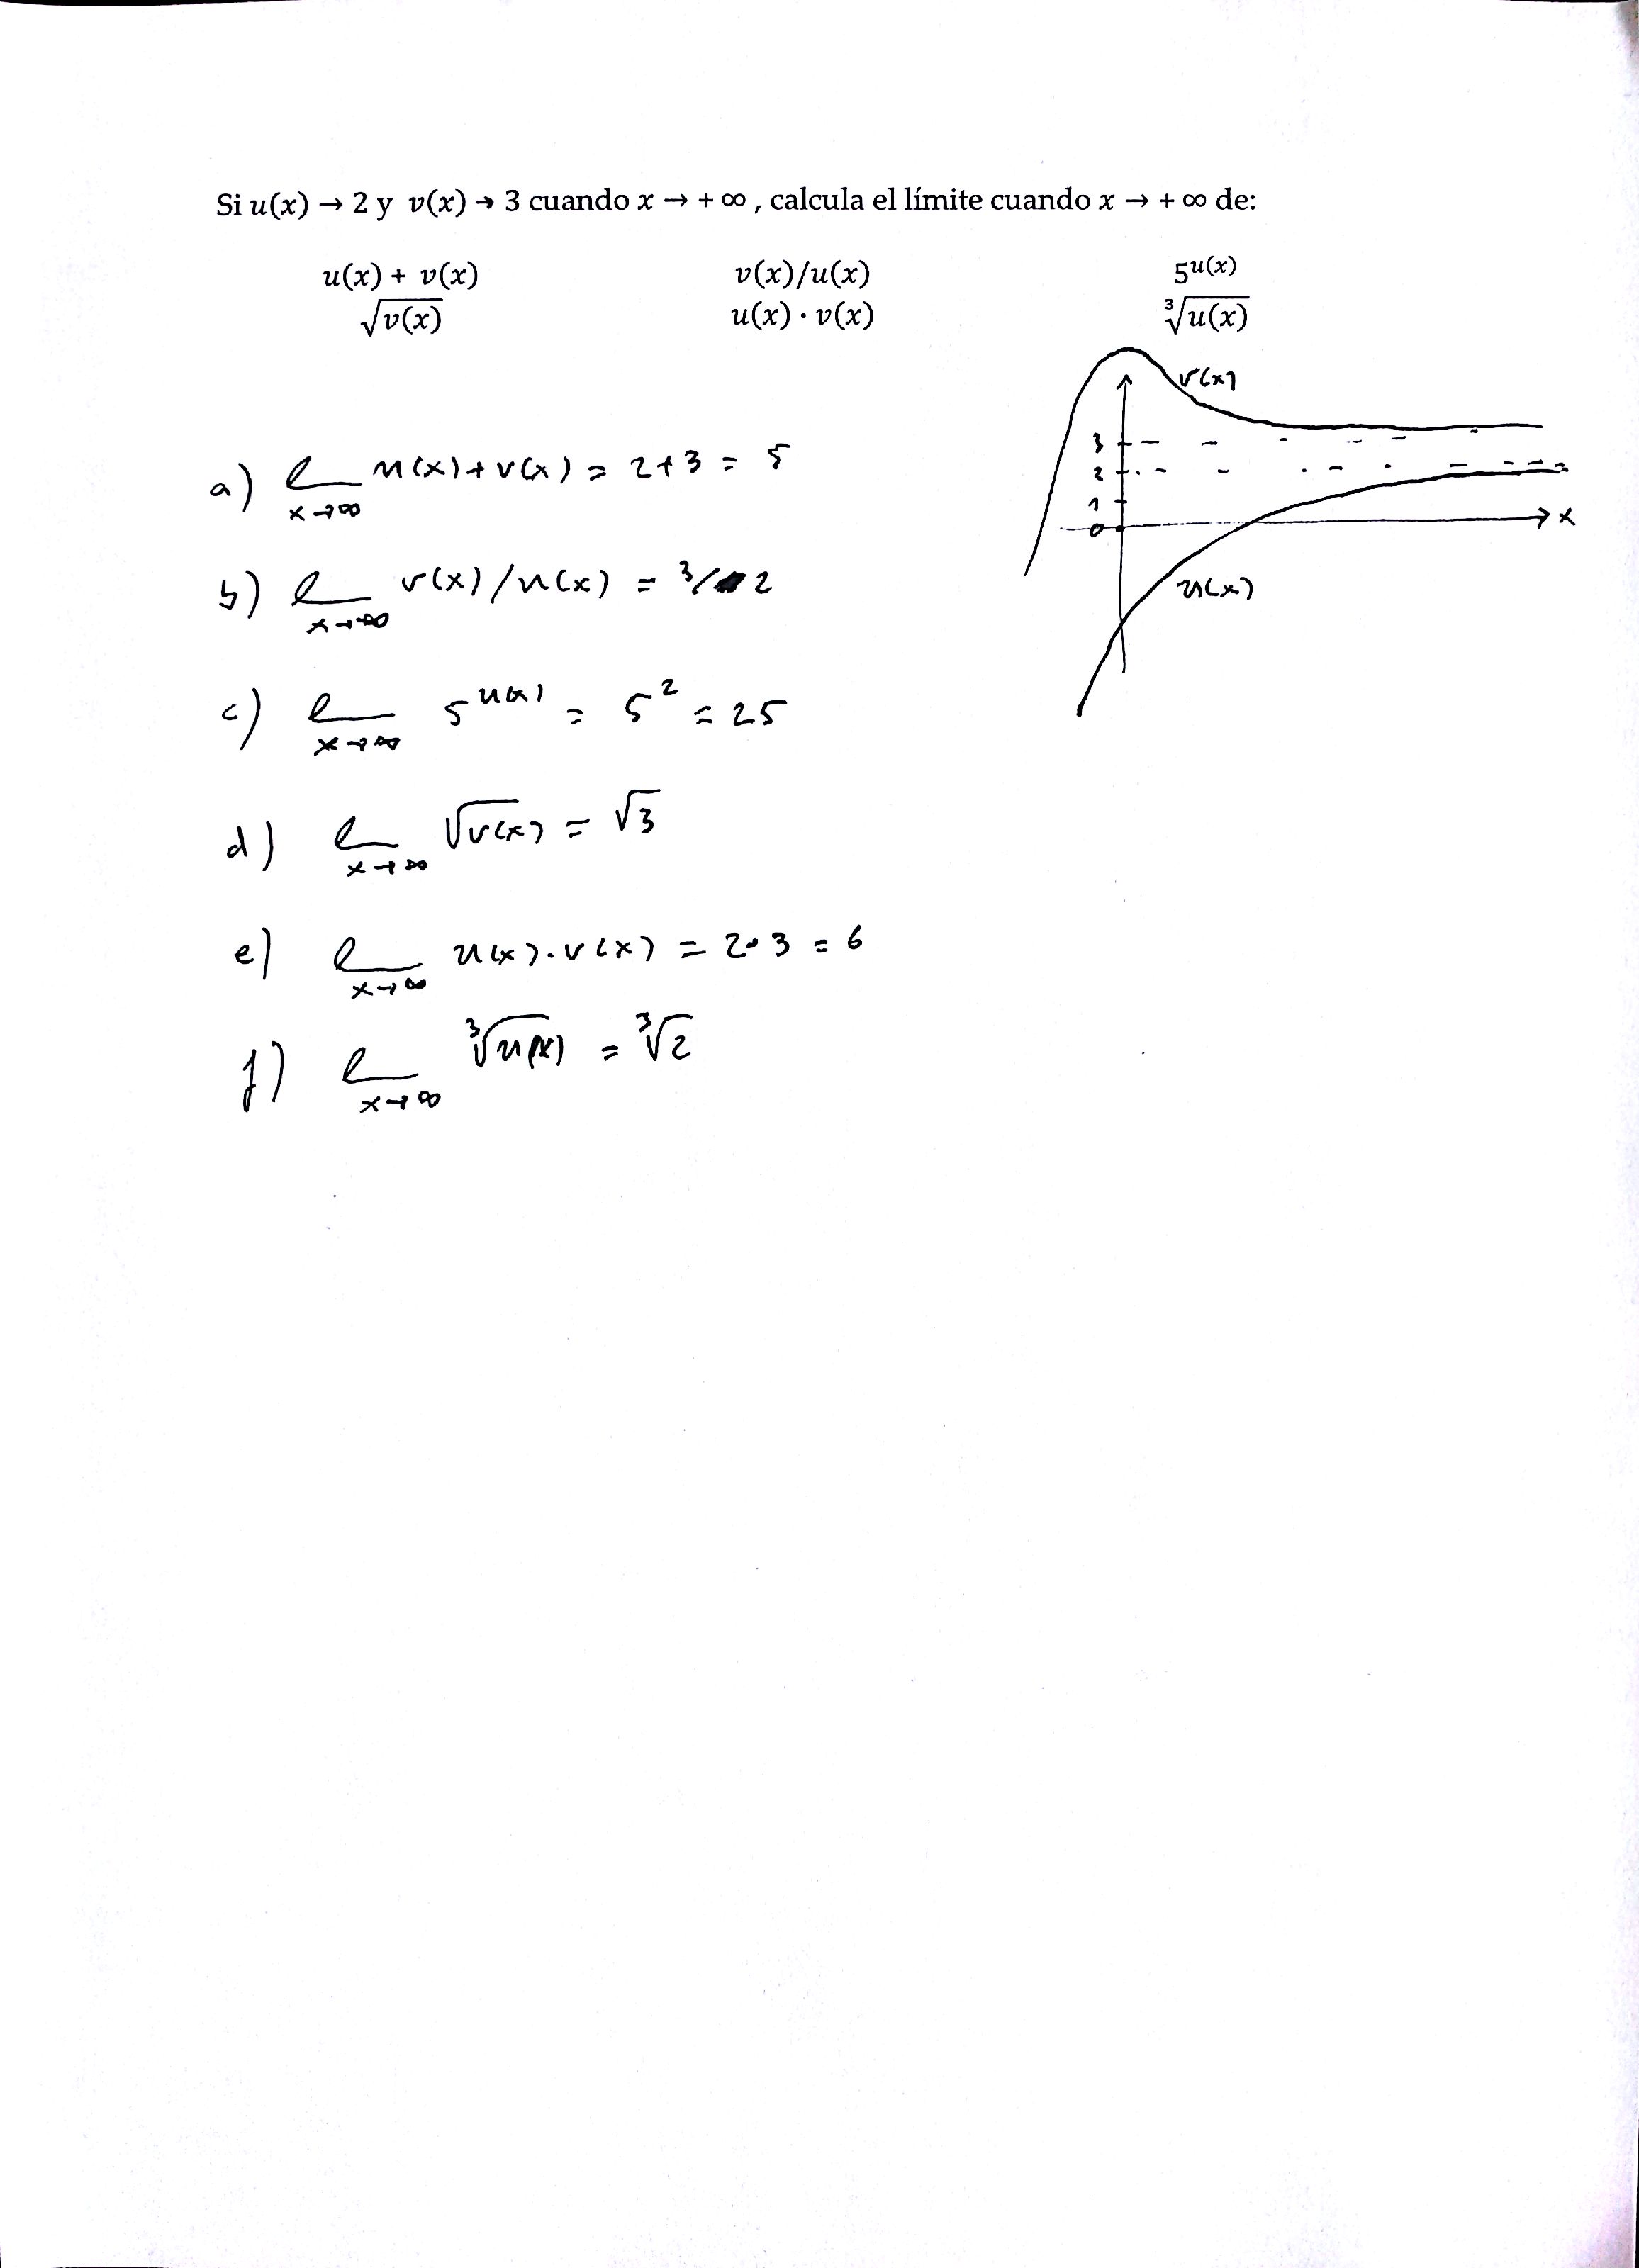 Si u(x) → 2 y v(x) → 3 cuando x → + ∞ , calcula el límite cuando x → + ∞ de:
u(x) + v(x) v(x)/u(x) 5^u(x)
√v(x) u(x) · v(x) ∛u(x)
v(x)
3
2
1
0
x
u(x)
a) l x→∞ u(x)+v(x) = 2+3 = 5
b) l x→∞ v(x)/u(x) = 3/2
c) l x→∞ 5^u(x) = 5² = 25
d) l x→∞ √v(x) = √3
e) l x→∞ u(x)·v(x) = 2·3 = 6
f) l x→∞ ∛u(x) = ∛2